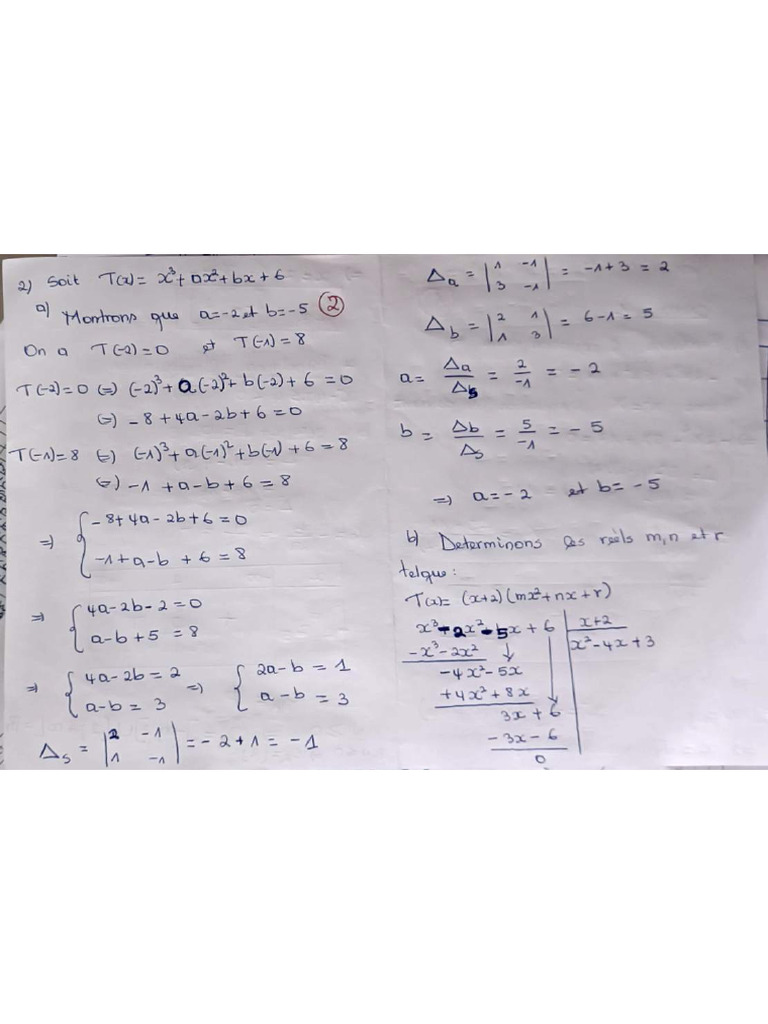 2) Soit T(x) = x³ + ax² + bx + 6
a) Montrons que a = -2 et b = -5 ②
On a T(-2) = 0 et T(-1) = 8
T(-2) = 0 (=) (-2)³ + a(-2)² + b(-2) + 6 = 0
(=) -8 + 4a - 2b + 6 = 0
T(-1) = 8 (=) (-1)³ + a(-1)² + b(-1) + 6 = 8
(=) -1 + a - b + 6 = 8
=> { -8 + 4a - 2b + 6 = 0
-1 + a - b + 6 = 8
=> { 4a - 2b - 2 = 0
a - b + 5 = 8
=> { 4a - 2b = 2 => { 2a - b = 1
a - b = 3 a - b = 3
Δs = | 2 -1 | = -2 + 1 = -1
| 1 -1 |
Δa = | 1 -1 | = -1 + 3 = 2
| 3 -1 |
Δb = | 2 1 | = 6 - 1 = 5
| 1 3 |
a = Δa/Δs = 2/-1 = -2
b = Δb/Δs = 5/-1 = -5
=> a = -2 et b = -5
b) Determinons les réels m, n et r
telque :
T(x) = (x+2)(mx² + nx + r)
x³ - 2x² - 5x + 6 | x + 2
-x³ - 2x² | x² - 4x + 3
-4x² - 5x
+4x² + 8x
3x + 6
-3x - 6
0